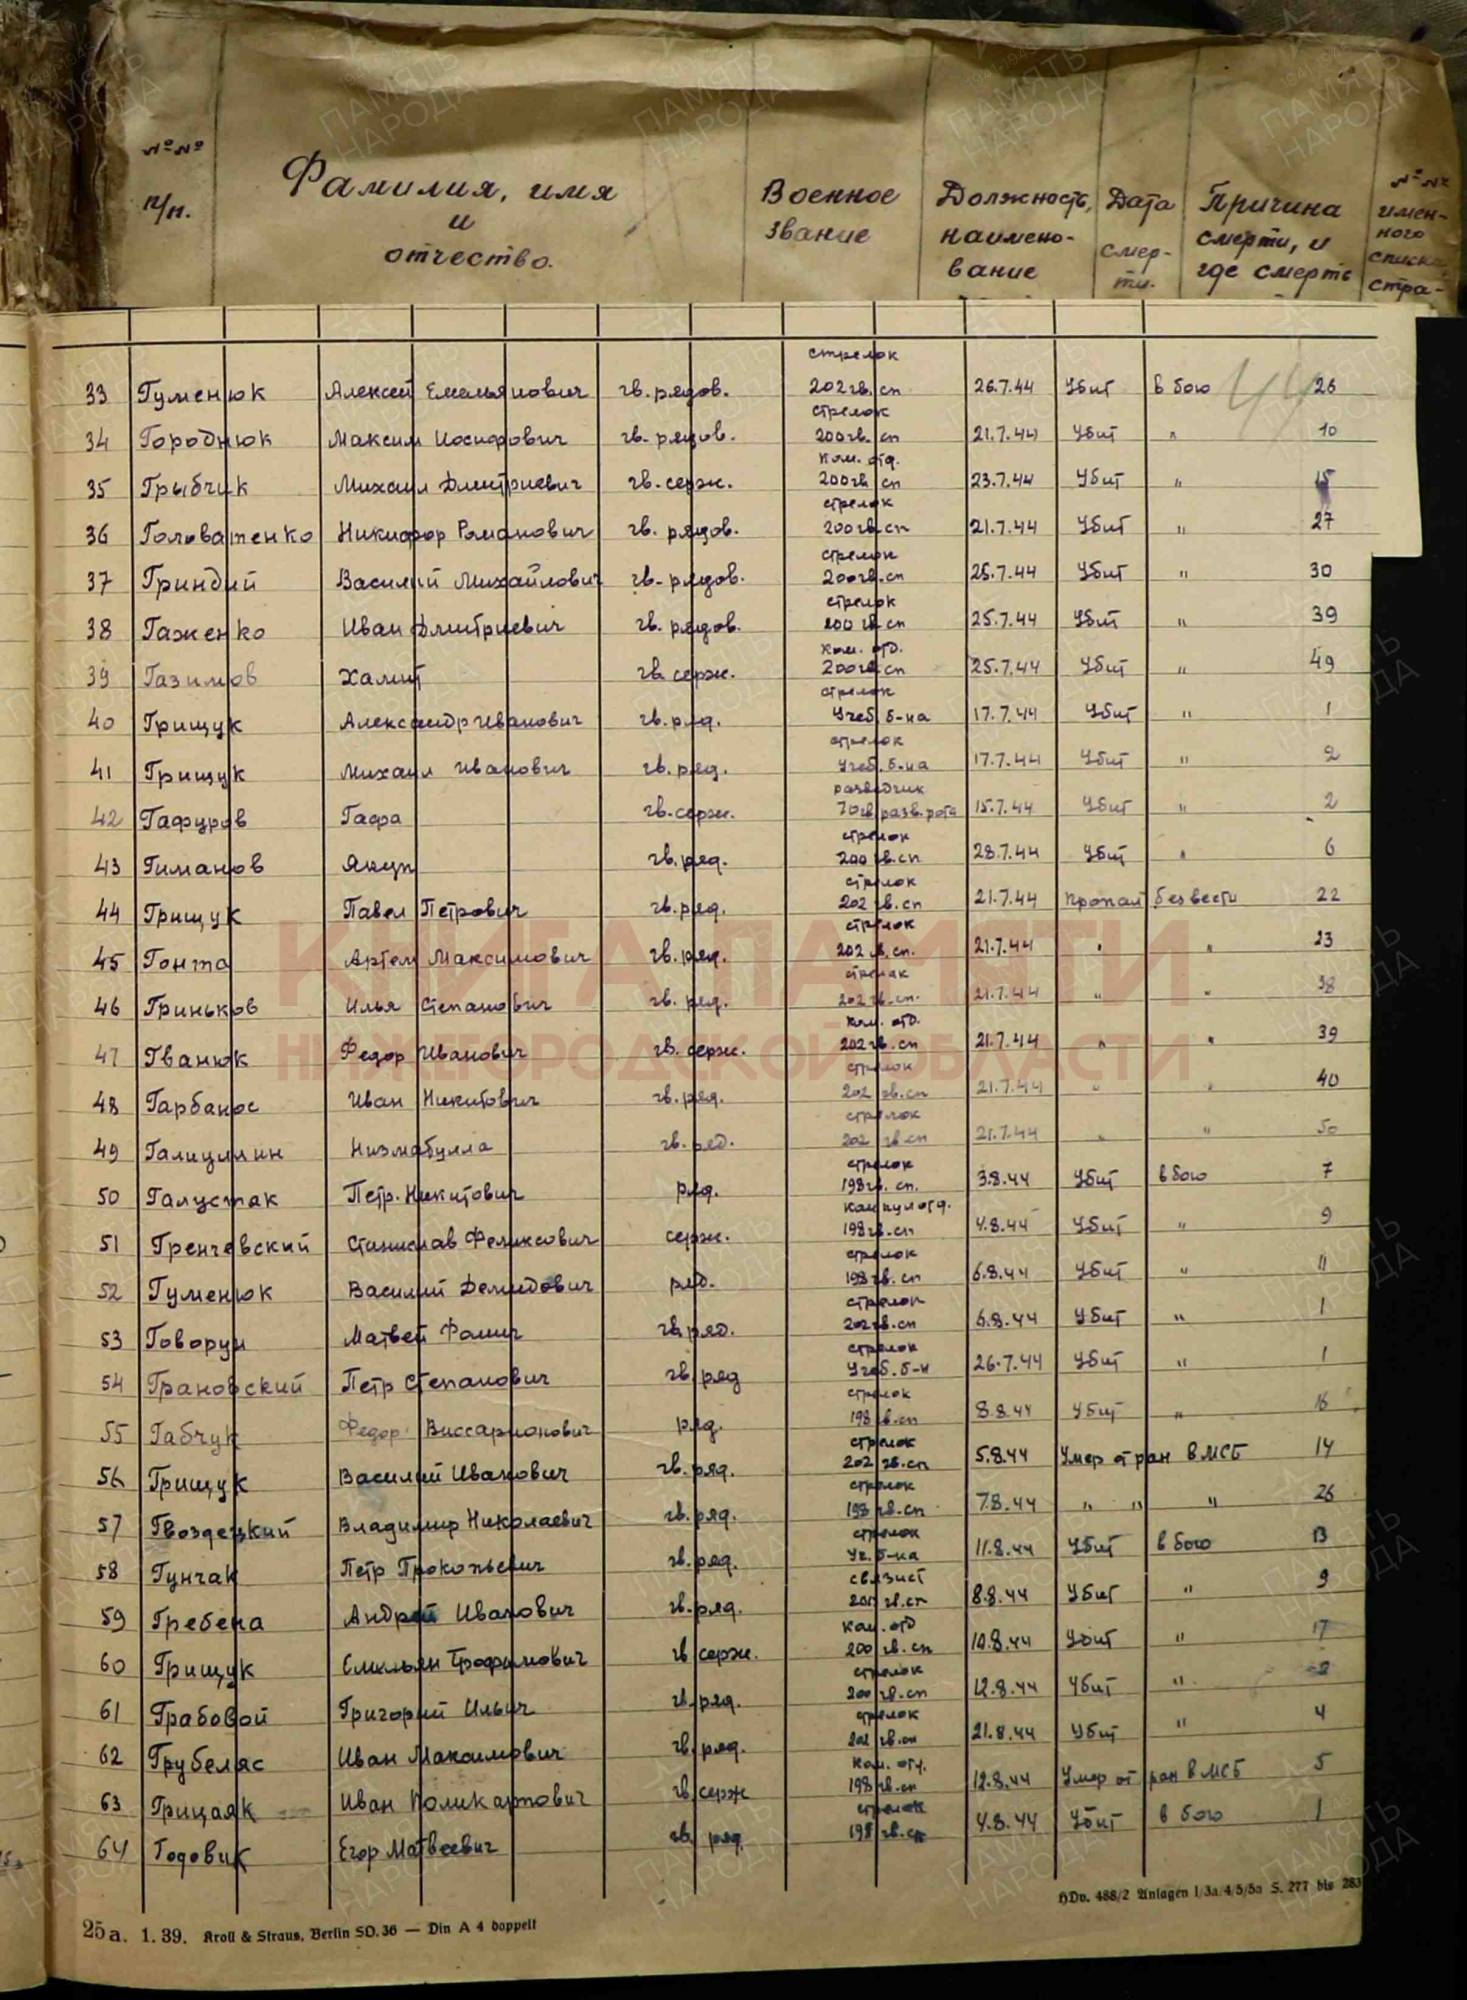 №№ п/п. Фамилия, имя и отчество. Военное звание Должность, наимено- вание Дата смер- ти. Причина смерти, и где смерть №№ имен- ного списка, стра-
44
стрелок
33 Гуменюк Алексей Емельянович гв. рядов. 202 гв. сп 26.7.44 Убит в бою 26
стрелок
34 Городнюк Максим Иосифович гв. рядов. 200 гв. сп 21.7.44 Убит " 10
ком. отд.
35 Грыбчик Михаил Дмитриевич гв. серж. 200 гв сп 23.7.44 Убит " 15
стрелок
36 Головатенко Никифор Романович гв. рядов. 200 гв. сп 21.7.44 Убит " 27
стрелок
37 Гриндий Василий Михайлович гв. рядов. 200 гв. сп 25.7.44 Убит " 30
стрелок
38 Гаженко Иван Дмитриевич гв. рядов. 200 гв. сп 25.7.44 Убит " 39
ком. отд.
39 Газимов Халит гв. серж. 200 гв. сп 25.7.44 Убит " 49
стрелок
40 Грищук Александр Иванович гв. ряд. Учеб. б-на 17.7.44 Убит " 1
стрелок
41 Грищук Михаил Иванович гв. ряд. Учеб. б-на 17.7.44 Убит " 2
разведчик
42 Гафуров Гафа гв. серж. 70 гв. разв. рота 15.7.44 Убит " 2
стрелок
43 Гиманов Якуп гв. ряд. 200 гв. сп 28.7.44 Убит " 6
стрелок
44 Грищук Павел Петрович гв. ряд. 202 гв. сп 21.7.44 Пропал без вести 22
стрелок
45 Гонта Артем Максимович гв. ряд. 202 гв. сп. 21.7.44 " " 23
стрелок
46 Гриньков Илья Степанович гв. ряд. 202 гв. сп. 21.7.44 " " 38
ком. отд.
47 Гванюк Федор Иванович гв. серж. 202 гв. сп 21.7.44 " " 39
стрелок
48 Гарбанос Иван Никитович гв. ряд. 202 гв. сп 21.7.44 " " 40
стрелок
49 Галицулин Низмабулла гв. ряд. 202 гв. сп 21.7.44 " " 50
стрелок
50 Галустак Петр. Никитович ряд. 198 гв. сп. 3.8.44 Убит в бою 7
ком пул отд.
51 Гренчевский Станислав Феликсович серж. 198 гв. сп 4.8.44 Убит " 9
стрелок
52 Гуменюк Василий Демидович ряд. 198 гв. сп 6.8.44 Убит " 11
стрелок
53 Говорун Матвей Фомич гв. ряд. 202 гв. сп 6.8.44 Убит " 1
стрелок
54 Грановский Петр Степанович гв. ряд Учеб. б-н 26.7.44 Убит " 1
стрелок
55 Габчук Федор Виссарионович ряд. 198 гв. сп 8.8.44 Убит " 16
стрелок
56 Грищук Василий Иванович гв. ряд. 202 гв. сп 5.8.44 Умер от ран в МСБ 14
стрелок
57 Гвоздецкий Владимир Николаевич гв. ряд. 198 гв. сп 7.8.44 " " " 26
стрелок
58 Гунчак Петр Прокопьевич гв. ряд. Уч. б-на 11.8.44 Убит в бою 13
связист
59 Гребена Андрей Иванович гв. ряд. гв. сп 8.8.44 Убит " 9
ком. отд
60 Грищук Емельян Трофимович гв. серж. 200 гв. сп 10.8.44 Убит " 17
стрелок
61 Грабовой Григорий Ильич гв. ряд. 200 гв. сп 12.8.44 Убит "
стрелок
62 Грубеляс Иван Максимович гв. ряд. гв. сп 21.8.44 Убит " 4
ком. отд.
63 Грицаяк Иван Поликарпович гв. серж 198 гв. сп 12.8.44 Умер от ран в МСБ 5
стрелок
64 Годовик Егор Матвеевич гв. ряд. 198 гв. сп 4.8.44 Убит в бою 1
HDv. 488/2 Anlagen 1/3a/4/5/5a S. 277 bis 283
25a. 1.39. Kroll & Straus, Berlin SO. 36 — Din A 4 doppelt
КНИГА ПАМЯТИ
НИЖЕГОРОДСКОЙ ОБЛАСТИ
ПАМЯТЬ
НАРОДА